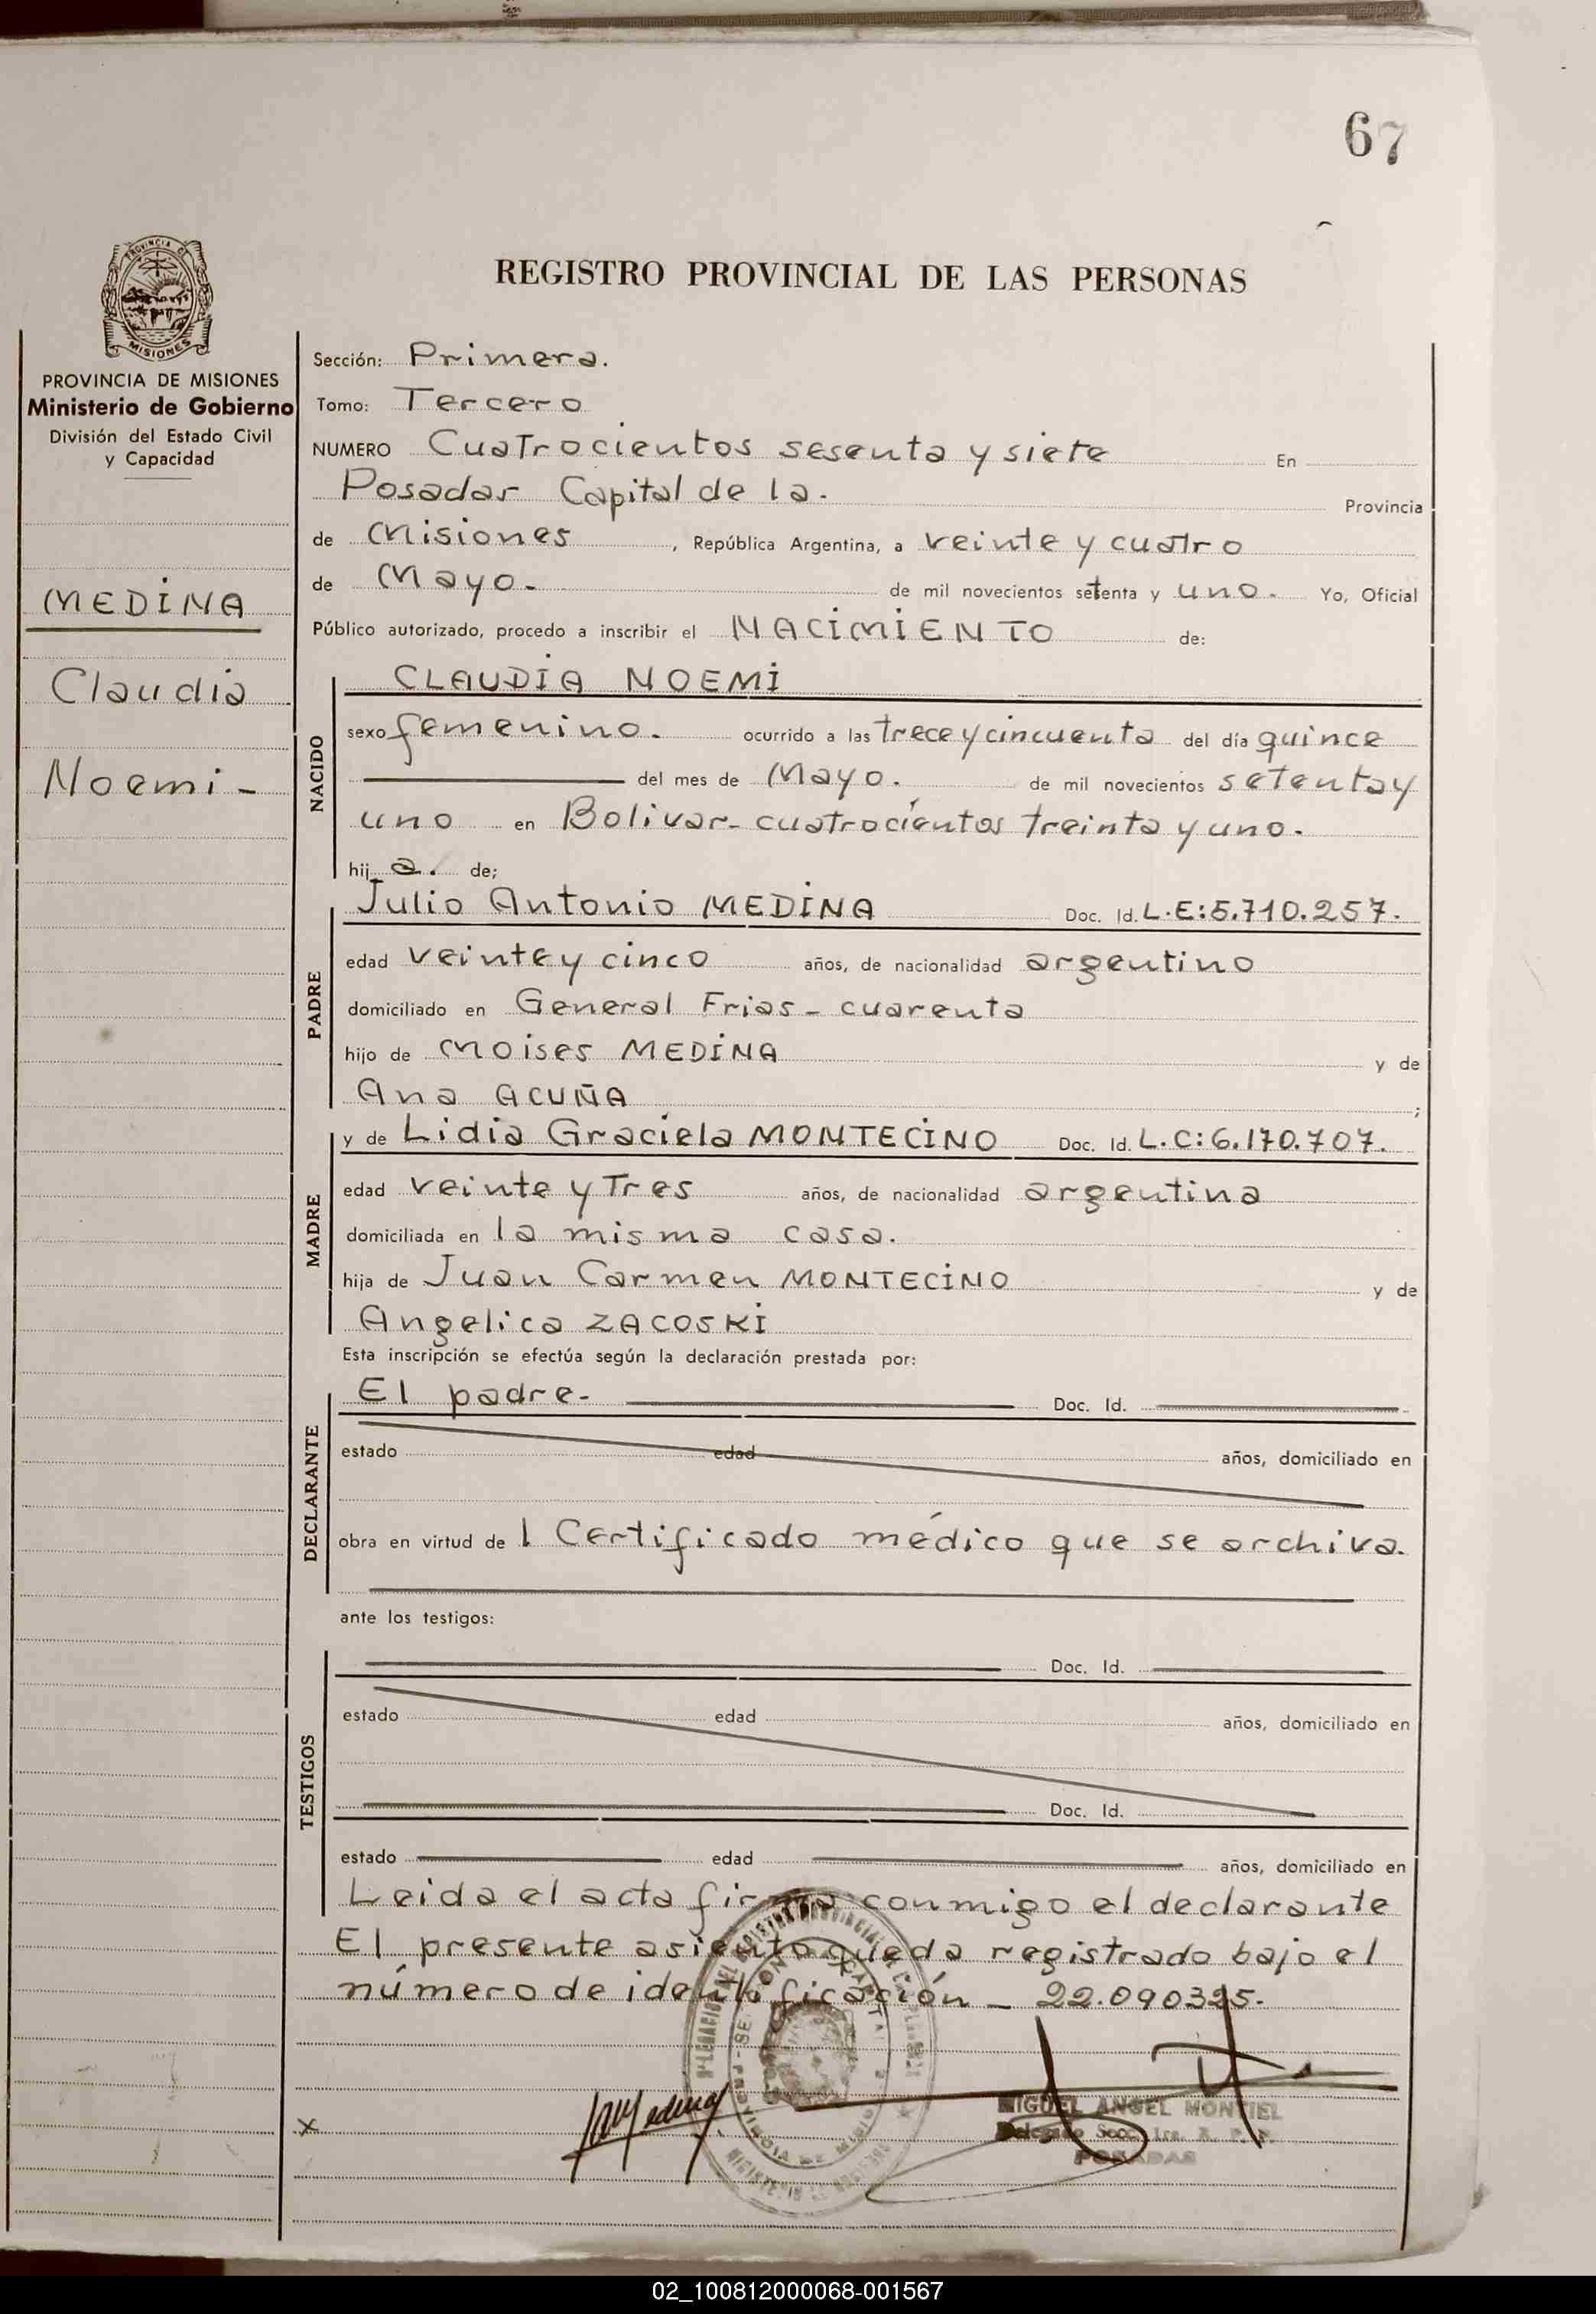 67
PROVINCIA DE
MISIONES
PROVINCIA DE MISIONES
Ministerio de Gobierno
División del Estado Civil
y Capacidad
MEDINA
Claudia
Noemi -
REGISTRO PROVINCIAL DE LAS PERSONAS
Sección: Primera.
Tomo: Tercero
NUMERO Cuatrocientos sesenta y siete En
Posadas Capital de la. Provincia
de Misiones, República Argentina, a veinte y cuatro
de Mayo. de mil novecientos setenta y uno. Yo, Oficial
Público autorizado, procedo a inscribir el NACIMIENTO de:
NACIDO
CLAUDIA NOEMI
sexo femenino. ocurrido a las trece y cincuenta del día quince
del mes de Mayo. de mil novecientos setenta y
uno en Bolivar - cuatrocientos treinta y uno.
hija. de;
PADRE
Julio Antonio MEDINA Doc. Id. L.E: 5.710.257.
edad veinte y cinco años, de nacionalidad argentino
domiciliado en General Frias - cuarenta
hijo de Moises MEDINA y de
Ana ACUÑA ;
MADRE
y de Lidia Graciela MONTECINO Doc. Id. L.C: 6.170.707.
edad veinte y Tres años, de nacionalidad argentina
domiciliada en la misma casa.
hija de Juan Carmen MONTECINO y de
Angelica ZACOSKI
Esta inscripción se efectúa según la declaración prestada por:
DECLARANTE
El padre - Doc. Id.
estado edad años, domiciliado en
obra en virtud de 1 Certificado médico que se archiva.
ante los testigos:
TESTIGOS
Doc. Id.
estado edad años, domiciliado en
Doc. Id.
estado edad años, domiciliado en
Leida el acta firma conmigo el declarante
El presente asiento queda registrado bajo el
número de identificación - 22.090325.
X
Medina
MIGUEL ANGEL MONTIEL
Delegado Secc. 1ra. R. P. P.
POSADAS
02_100812000068-001567